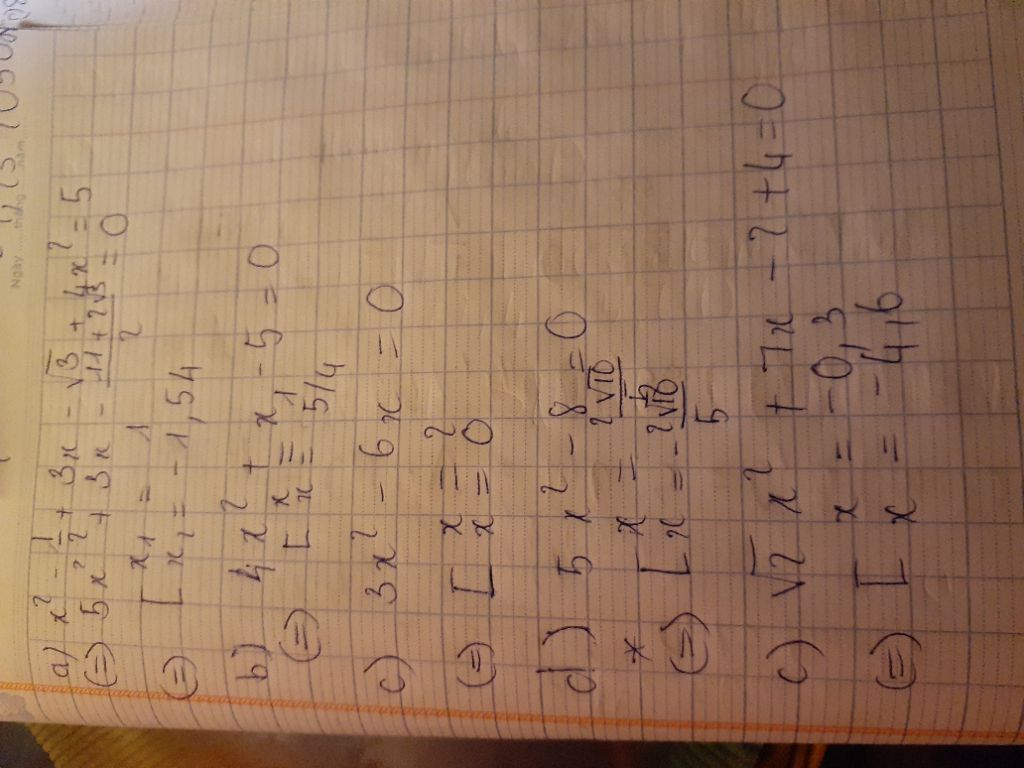 Ngày tháng năm
a) x² - 1/2 + 3x - √3 + 4x² = 5
(=) 5x² + 3x - (11 + 2√3)/2 = 0
(=) [ x₁ = 1
x₂ = -1,54
b) 4x² + x - 5 = 0
(=) [ x = 1
x = 5/4
c) 3x² - 6x = 0
(=) [ x = 2
x = 0
d) 5x² - 8 = 0
* x = 2√10/5
(=) [ x = -2√10/5
c) √2 x² + 7x - 2 + 4 = 0
x = -0,3
(=) [ x = -4,6